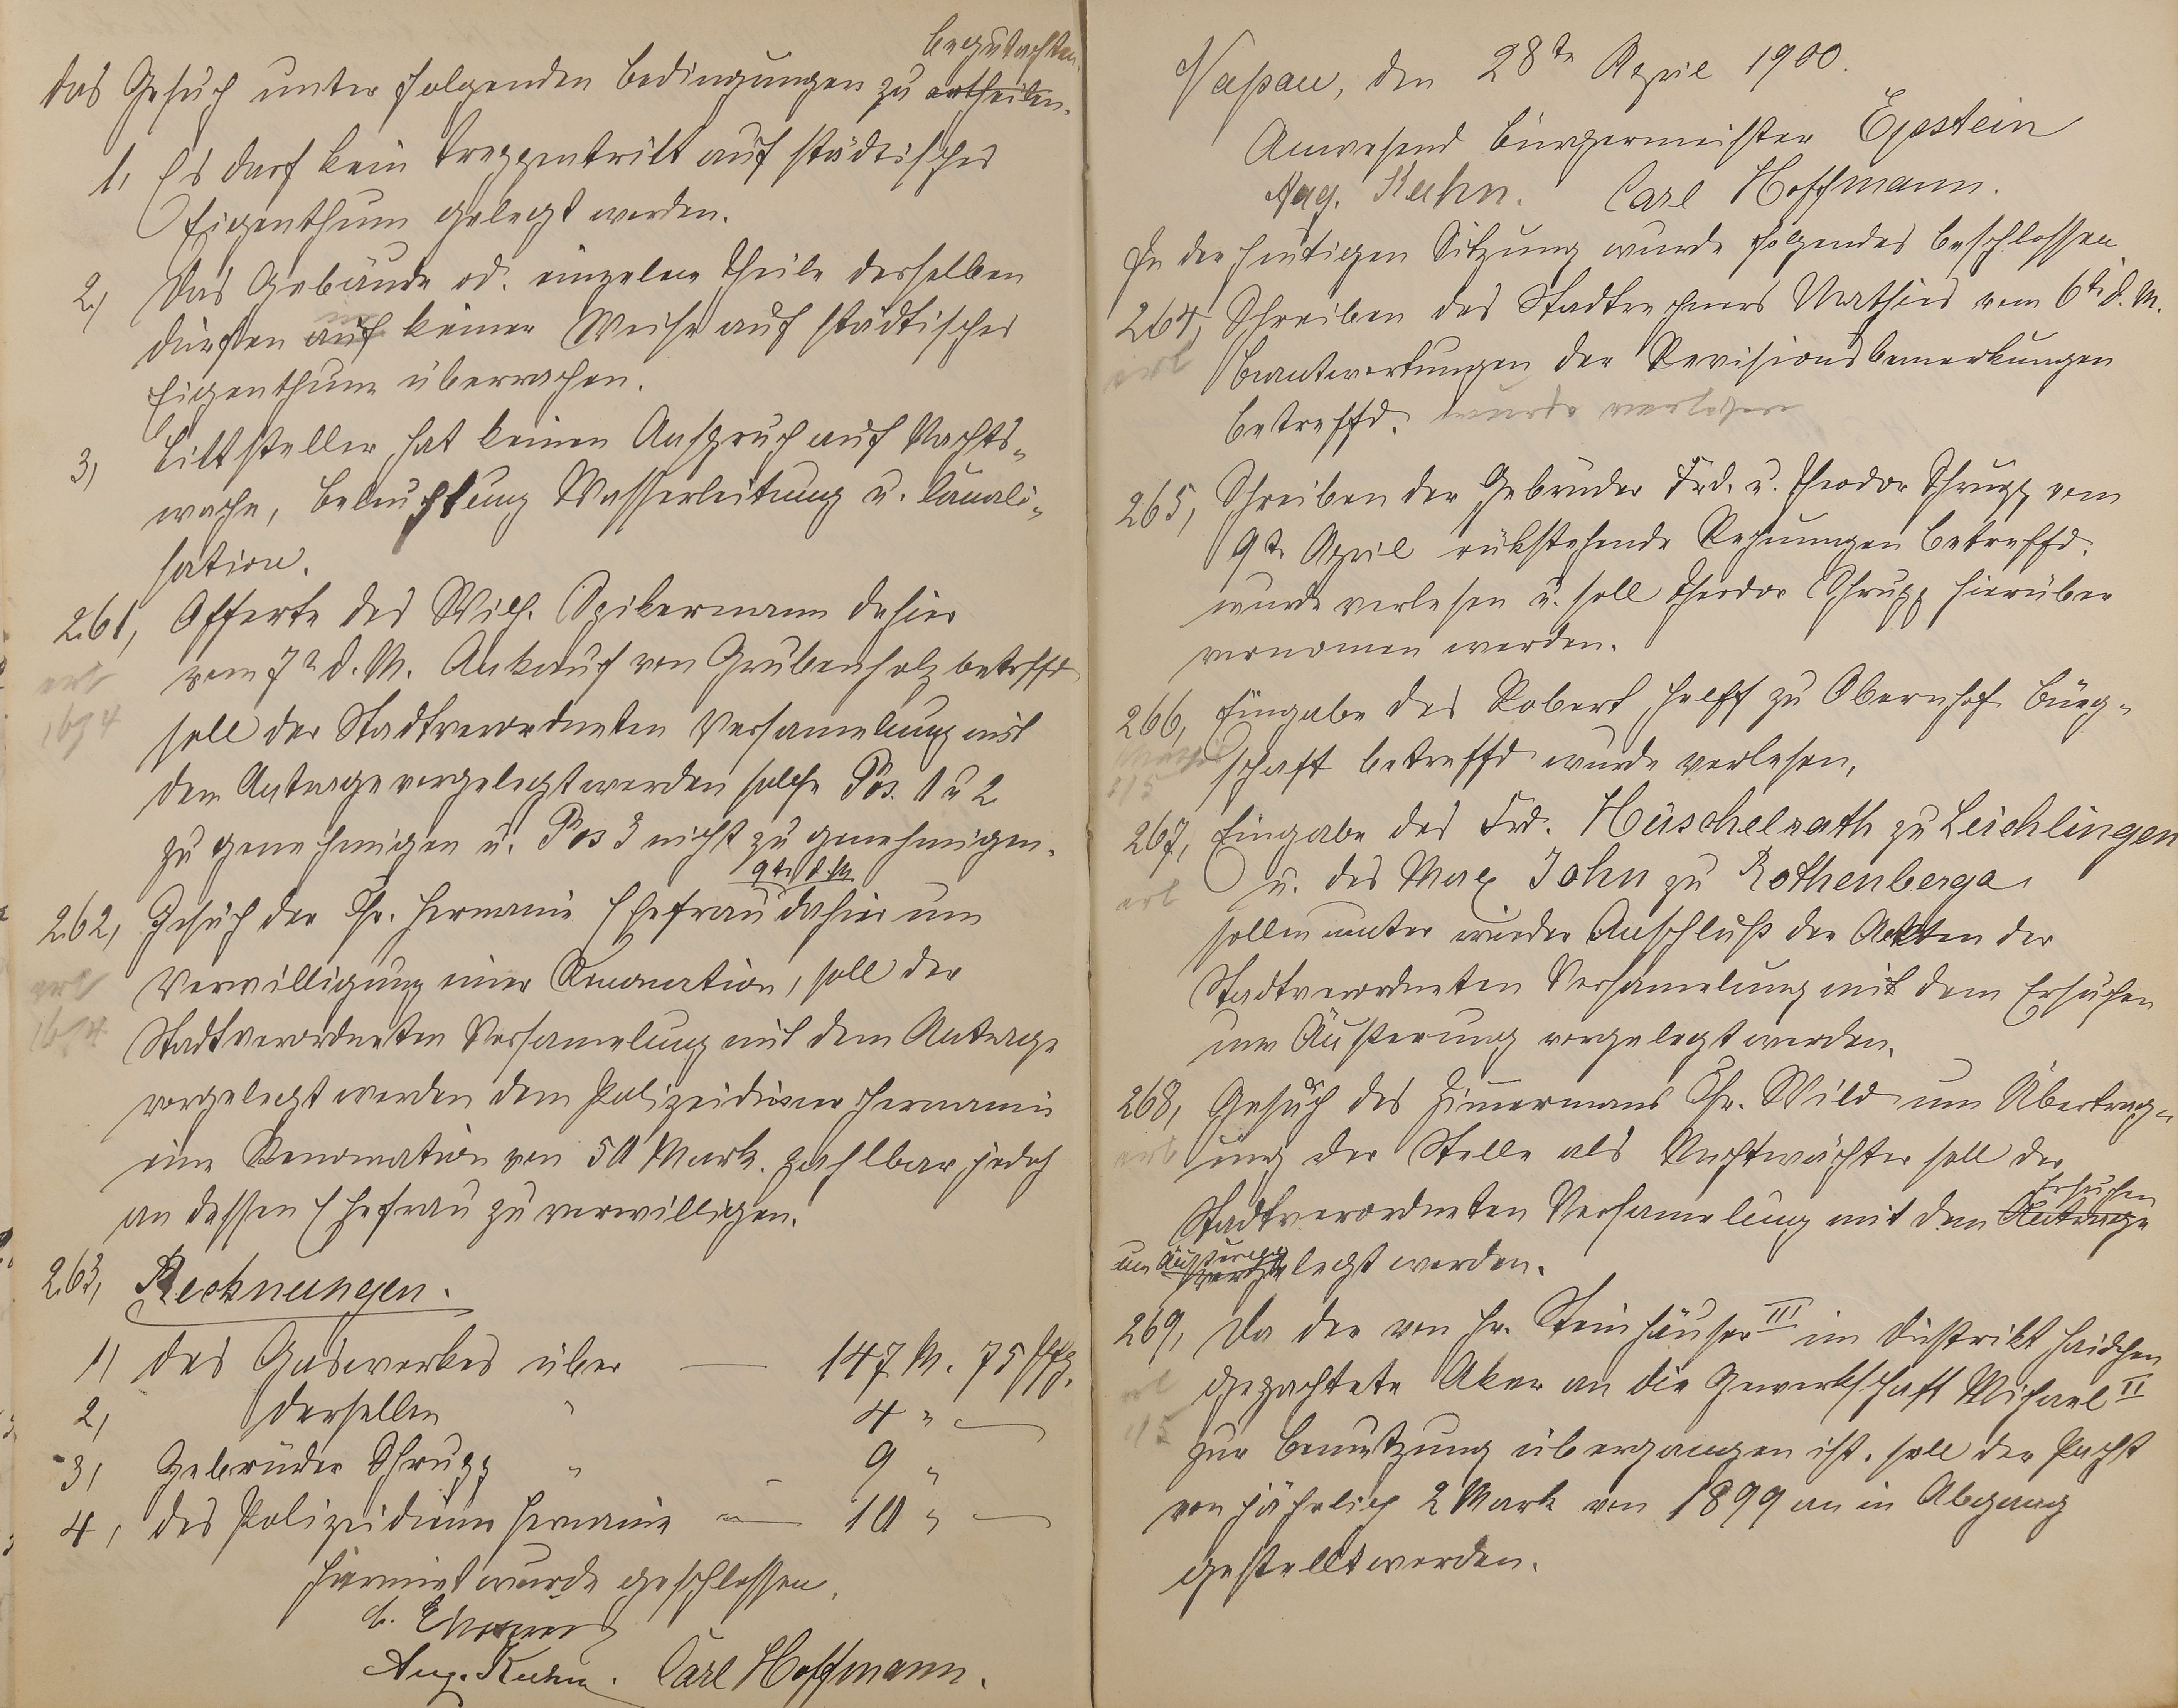 begutachten.
das Gesuch unter folgenden Bedingungen zu ertheilen.
1, Es darf kein Treppentritt auf städtisches
Eigenthum gelegt werden.
2, Das Gebäude od. einzelne Theile desselben
dürfen auf keiner Weise auf städtisches
Eigenthum überragen.
3, Bittsteller hat keinen Anspruch auf Nachts-
wache, Beleuchtung Wasserleitung u. Canali-
sation.
261, Offerte des Wilh. Spikermann dahier
erl
vom 7n d. M. Ankauf von Grubenholz betreffd
16/4
soll der Stadtverordneten Versamelung mit
dem Antrage vorgelegt werden solche Pos. 1 u 2
zu genehmigen u. Pos 3 nicht zu genehmigen.
9te d. M.
262, Gesuch der Chr. Hermanie Ehefrau dahier um
erl
Verwilligung einer Renomation, soll der
16/4
Stadtverordneten Versamelung mit dem Antrage
vorgelegt werden dem Polizeidiener Hermanie
eine Renomation von 50 Mark. zahlbar jedoch
an dessen Ehefrau zu verwilligen.
263, Rechnungen.
1, des Gaswerkes über — 147 M. 75 Pfg.
2, derselben " 4 " —
3, Gebrüder Schrupp " - 9 "
4, des Polizeidiener Hermanie — 10 " —
Hiermit wurde geschlossen.
Aug. Kuhn. Carl Hoffmann.
Nassau, den 28te April 1900.
Anwesend Bürgermeister Epstein
Aug. Kuhn. Carl Hoffmann.
In der heutigen Sitzung wurde folgendes beschlossen
264, Schreiben des Stadtrechners Mathies vom 6te d. M.
erl
Beantwortungen der Revisionsbemerkungen
betreffd. wurde verlesen
265, Schreiben der Gebrüder Frd. u. Theodor Schrupp vom
9te April rükstehende Rechnungen betreffd.
wurde verlesen u. soll Theodor Schrupp hierüber
vernomen werden.
266, Eingabe des Robert Helff zu Obernhof Bürg-
schaft betreffd wurde verlesen,
267, Eingabe des Frd. Hüschelrath zu Leichlingen
erl
u. des Max John zu Rothenberga
sollen unter wieder Anschluß der Akten der
Stadtverordneten Versamelung mit dem Ersuchen
um Äusserung vorgelegt werden.
268, Gesuch des Zimmermans Chr. Wild um Übertrag-
erl
ung der Stelle als Nachtwächter soll der
Ersuchen
Stadtverordneten Versamelung mit dem Antrage
um Äusserung
vorgelegt werden.
269, Da der von Hr. Steinhäuser III im Distrikt Haidchen
erl
gepachtete Aker an die Gewerkschaft Michael II
1/5
zur Benutzung übergangen ist, soll der Pacht
von jährlich 2 Mark von 1899 an in Abgang
gestellt werden.